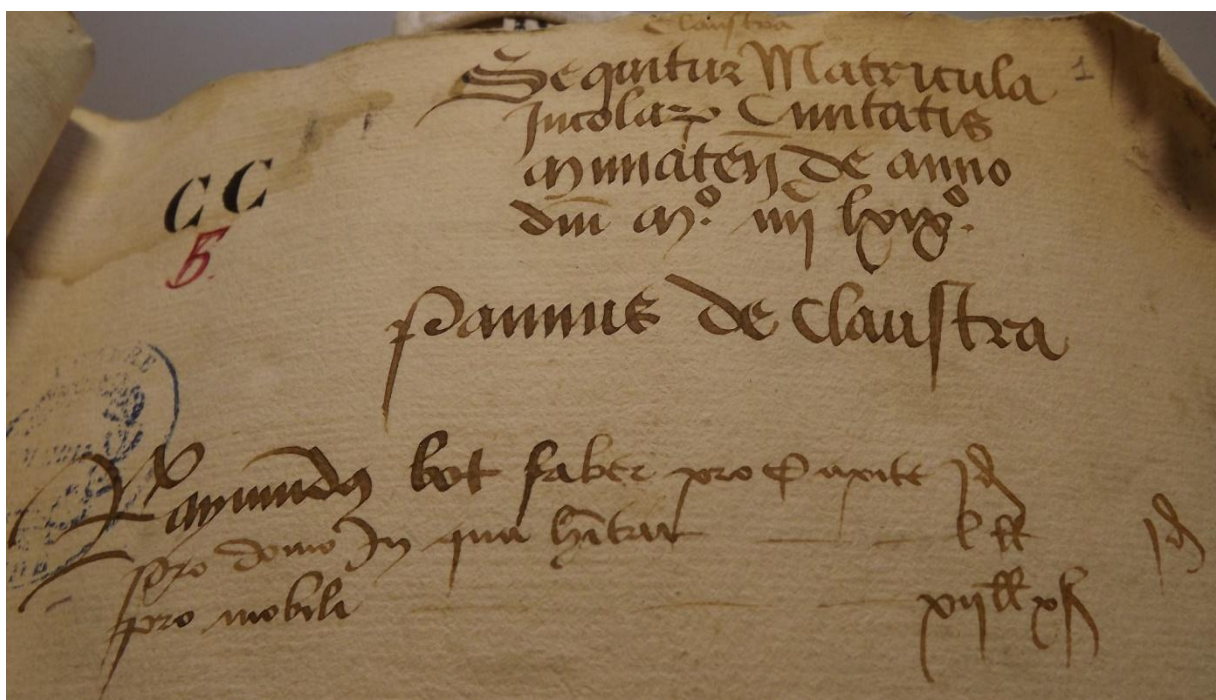 Claustra
Sequitur Matricula 1
Incolarum Civitatis
de anno
dm mº iiijc lxixº.
CC
5.
Pannus de Claustra
Raymundus bot faber pro Capite
pro domo In qua hitat l ll
pro mobili xij ll x s